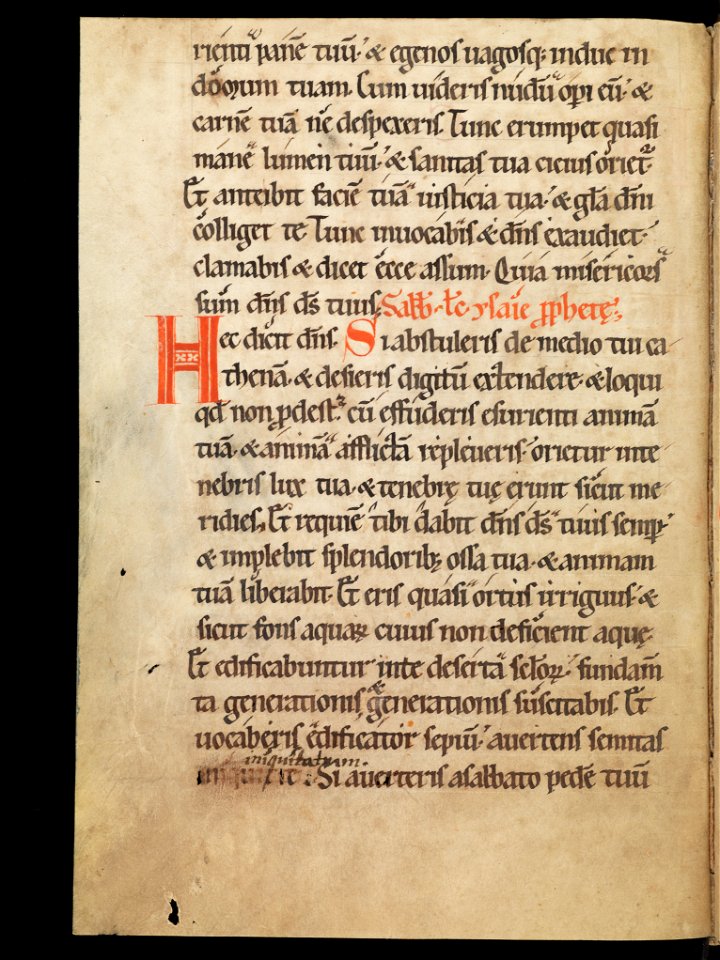 rienti panē tuū· & egenos uagosq; induc in
domum tuam. Cum uideris nudū opi eū· &
carnē tuā ne despexeris. Tunc erumpet quasi
mane lumen tuū· & sanitas tua cicius oriet.
Et anteibit faciē tuā iusticia tua· & gła dñi
colliget te. Tunc inuocabis & dñs exaudiet·
clamabis & dicet ecce assum. Quia misericors
sum dñs ds tuus. Sabb. łc ysaie pphetę.
Hec dicit dñs. Si abstuleris de medio tui ca
thenā· & desieris digitū extendere· & loqui
qd non pdest. cū effuderis esurienti animā
tuā· & animā afflictā repleueris· orietur inte
nebris lux tua· & tenebrę tuę erunt sicut me
ridies. Et requiē tibi dabit dñs ds tuus semp
& implebit splendorib; ossa tua· & animam
tuā liberabit. Et eris quasi ortus irriguus· &
sicut fons aquaꝝ cuius non deficient aquę.
Et edificabuntur inte deserta sclorꝝ· fundam̄
ta generationis & generationis suscitabis. Et
uocaberis edificator sepiū· auertens semitas
iniquitatum.
Si auerteris asabbato pedē tuū